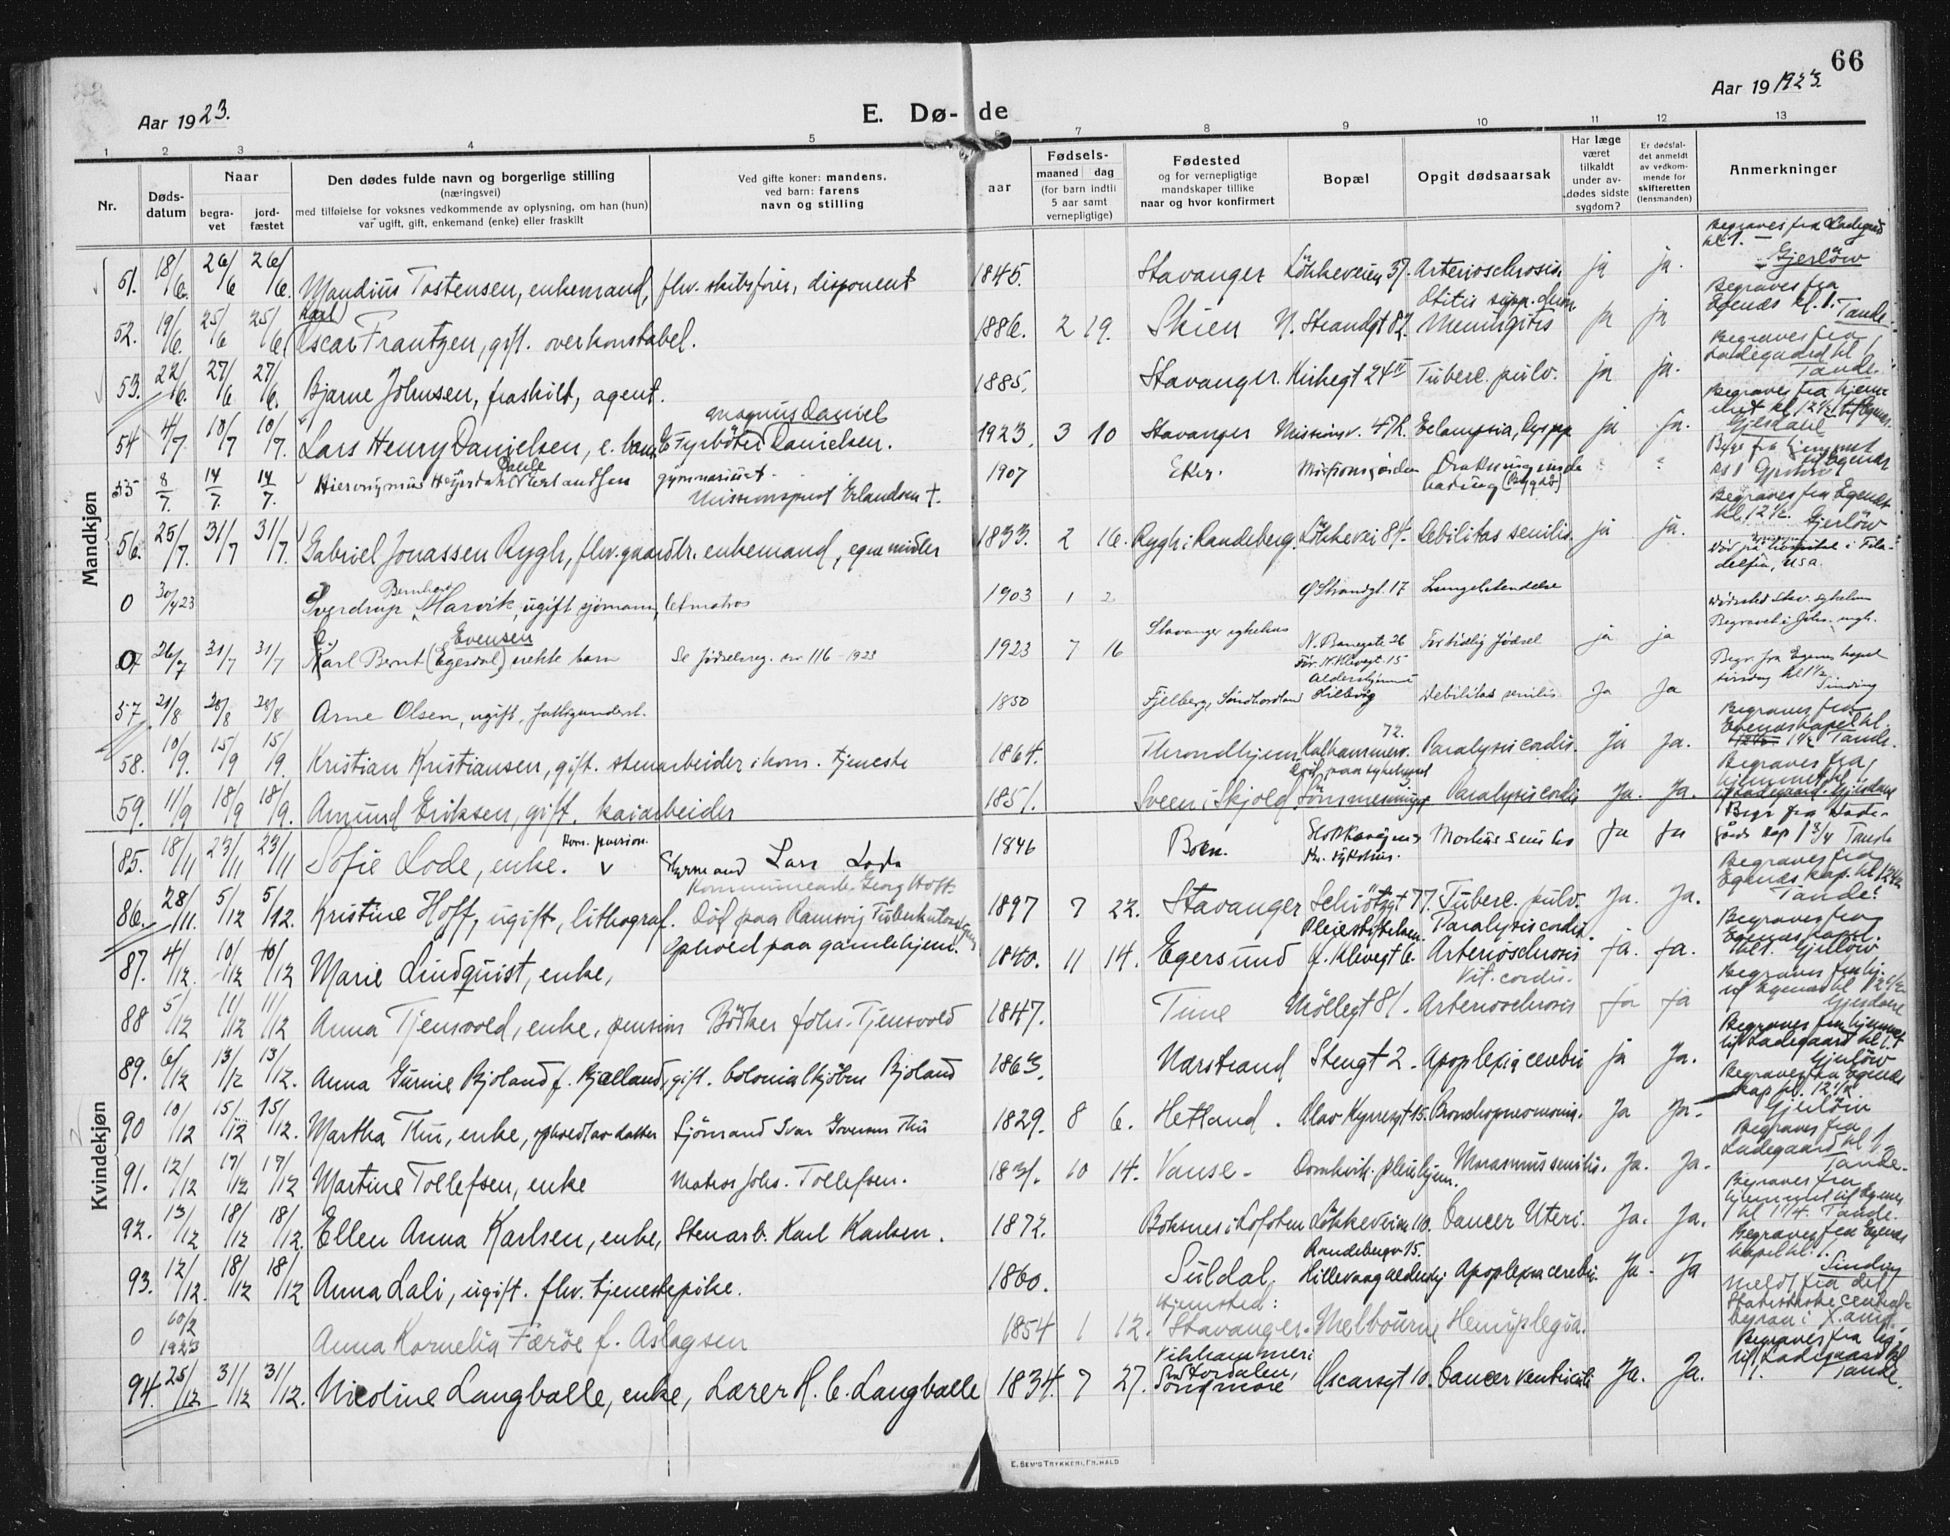 66
Aar 1923.
E. Dø- de
Aar 19 1923.
1 2 3 4 5 7 8 9 10 11 12 13
Nr.
Døds-
datum
Naar
begra-
vet
jord-
fæstet
Den dødes fulde navn og borgerlige stilling
(næringsvei)
med tilføielse for voksnes vedkommende av oplysning, om han (hun)
var ugift, gift, enkemand (enke) eller fraskilt
Ved gifte koner: mandens.
ved barn: farens
navn og stilling
aar
Fødsels-
maaned dag
(for barn indtil
5 aar samt
vernepligtige)
Fødested
og for vernepligtige
mandskaper tillike
naar og hvor konfirmert
Bopæl
Opgit dødsaarsak
Har læge
været
tilkaldt
under av-
dødes sidste
sygdom?
Er dødsfal-
det anmeldt
av vedkom-
mende for
skifteretten
(lensmanden)
Anmerkninger
Mandkjøn
Begraves fra Ladegaard
kl. 1. Gjerløw
51. 18/6. 26/6 26/6. Mandius Tostensen, enkemand, fhv. skibsfører, disponent 1845. Stavanger Løkkeveien 37. Arteriosclerosis ja ja.
Begraves fra
Egenæs kl. 1. Tande.
52. 19/6. 25/6 25/6. (Karl) Oscar Frantzen, gift. overkonstabel. 1886. 2 19. Skien N. Strandgt 82. Otitis supp. Meningitis ja ja
Begraves fra
Ladegaard kl 1
Tande.
53. 22/6. 27/6 27/6. Bjarne Johnsen, fraskilt, agent. 1885. Stavanger. Kirkegt 24 II Tuberc. pulv. ja ja.
Begraves fra hjem-
met kl 12½ til Egenæs.
Gjesdahl
54 4/7 10/7 10/7. Lars Henry Danielsen, e. barn Fyrbøter Magnus Daniel Danielsen. 1923. 3 10 Stavanger Missionsv. 47b. Eclampsia, Dyspp ja ja.
55 8/7. 14/7. 14/7. Hieronymus Heyerdahl Erlandsen gymnasiast. Missionsprest Erlandsen †. 1907 Missionsgården Drukning under bading
Begraves fra Egenæs
kl 12½. Gjerløw
56. 25/7. 31/7 31/7. Gabriel Jonassen Rygh, fhv. gaardbr. enkemand, egne midler 1833. 2 16. Rygh i Randeberg. Løkkevei 84. Debilitas senilis. ja ja.
Død på hospital i Fila-
delfia, USA.
0 30/4 23 Sverdrup Bernhard Marvik, ugift sjømann, letmatros 1903 1 2 Ø Strandgt. 17 Lungebetendelse
Dødssted Stav. sykehus
Begravet i Joh. mgh.
0 26/7 31/7 31/7 Karl Bernt (Egersdal) Evensen uekte barn Se fødselsreg. nr 116 - 1923 1923 7 16 Stavanger sykehus N. Banegate 26 For tidlig fødsel ja ja
Før: N. Klevegt. 15
Begr. fra Egenes kapel
tirsdag kl 1½
Sinding
57 21/8 28/8 28/8 Arne Olsen, ugift, fattigunderst. 1850 Fjelberg, Søndhordland Aldershjemmet Hillevåg Debilitas senilis Ja Ja
Begraves fra
Egenæs kapel kl.
1½ Tande.
58. 10/9. 15/9 15/9. Kristian Kristiansen, gift. stenarbeider i kom. tjeneste 1864. Throndhjem Kalhammerv. 72. Paralysis cordis. Ja Ja.
Begraves fra
hjemmet kl 1
til Ladegaard. Gjesdahl
59. 11/9 18/9 18/9. Amund Eriksen, gift. kaiarbeider 1851. Sveen i Skjold Død paa sykehuset Paralysis cordis Ja. Ja.
Kvindekjøn
Begr. fra Lade-
gårds kap 1 3/4 Tande
85. 18/11 23/11 23/11 Sofie Lode, enke. Kom. pension. Lars Lode 1846 Boen. Mortus senilis Ja Ja
Begraves fra
Egenæs kap. kl 12½
Tande.
86. 28/11. 5/12 5/12. Kristine Hoff, ugift, lithograf. Kommunearb. Georg Hoff. Død paa Ramsvig Tuberkulosehjem 1897 7 22. Stavanger Schiøtzgt 77. Tuberc. pulv. Ja. Ja.
Begraves fra
Egenæs kapel.
kl 1. Gjerløw
87. 4/12. 10/12 10/12 Marie Lindquist, enke, Ophold paa gamlehjem. 1840. 11 14. Egersund Pleiestiftelsen f. Klevegt 6. Paralysis cordis. Arteriosclerosis ja. ja.
88 5/12 11/12 11/12 Anna Tjensvold, enke, pension Bødker Johs. Tjensvold 1847. Time Møllegt 81. Vit. cordis. Arteriosclerosis ja ja
Begraves fra hjemmet
til Ladegaard kl 1
Gjerløw
89. 6/12 13/12 13/12. Anna Gurine Bjoland f. Kjælland, gift. kolonialkjøbm Bjoland 1863. Nærstrand Stengt 2. Apoplexia cerebri ja Ja.
Begraves fra Egenæs
kap kl. 12½
Gjerløw
90 10/12 15/12 15/12. Martha Thu, enke, ophold av datter Sjømand Ivar Govertsen Thu 1829. 8 6. Hetland. Olav Kyrresgt 15. Bronchopneumonia. Ja Ja.
Begraves fra
Ladegaard kl 1
Tande.
91. 12/12 17/12 17/12 Martine Tollefsen, enke Matros Johs. Tollefsen. 1831. 10 14. Vanse. Domkirk. pleiehjem. Marasmus senilis. Ja. Ja.
Begraves fra
hjemmet til Egenæs
kl 1 1/4. Tande.
92. 13/12 18/12 18/12. Ellen Anna Karlsen, enke, Stenarb. Karl Karlsen. 1872. Boksnes i Lofoten Løkkeveien 10. Cancer Uteri. Ja. Ja.
Begraves fra Egenæs
kapel kl. 1.
Sinding
93. 12/12. 18/12 18/12 Anna Lali, ugift. fhv. tjenestepike. 1860. Suldal. Randebergv 15. Hillevaag aldershj Apoplexia cerebri. Ja. Ja
Meldt fra det
Statistiske central-
byrån i X.ania.
0 10/2 1923 Anna Kornelia Færøe f. Aslagsen 1854 1 12. Hjemsted: Stavanger. Melbourne Hemiplegia.
Begraves fra lig.
til Ladegaard kl
1. Tande.
94. 25/12 31/12 31/12. Nicoline Langballe, enke, Lærer H. C. Langballe 1834. 7 27. Vikhammer i Stordalen, Søndmøre Oscarsgt 10. Cancer ventriculi Ja. Ja.
E. SEM'S TRYKKERI, FR.HALD